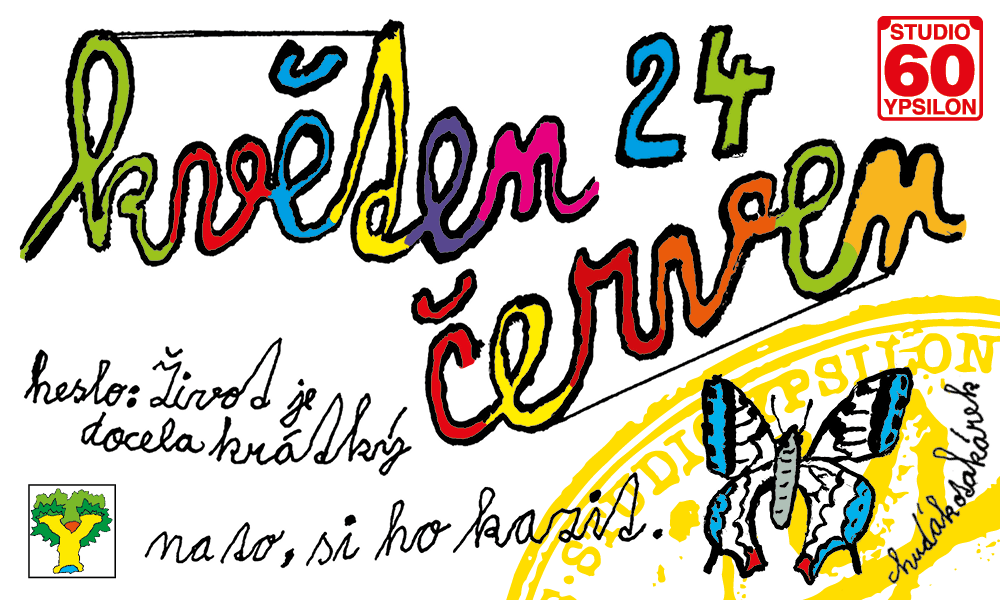 květen 24
červen
STUDIO
60
YPSILON
heslo: Život je
docela krátký
na to, si ho kazit.
STUDIO YPSILON
chudák otakárek